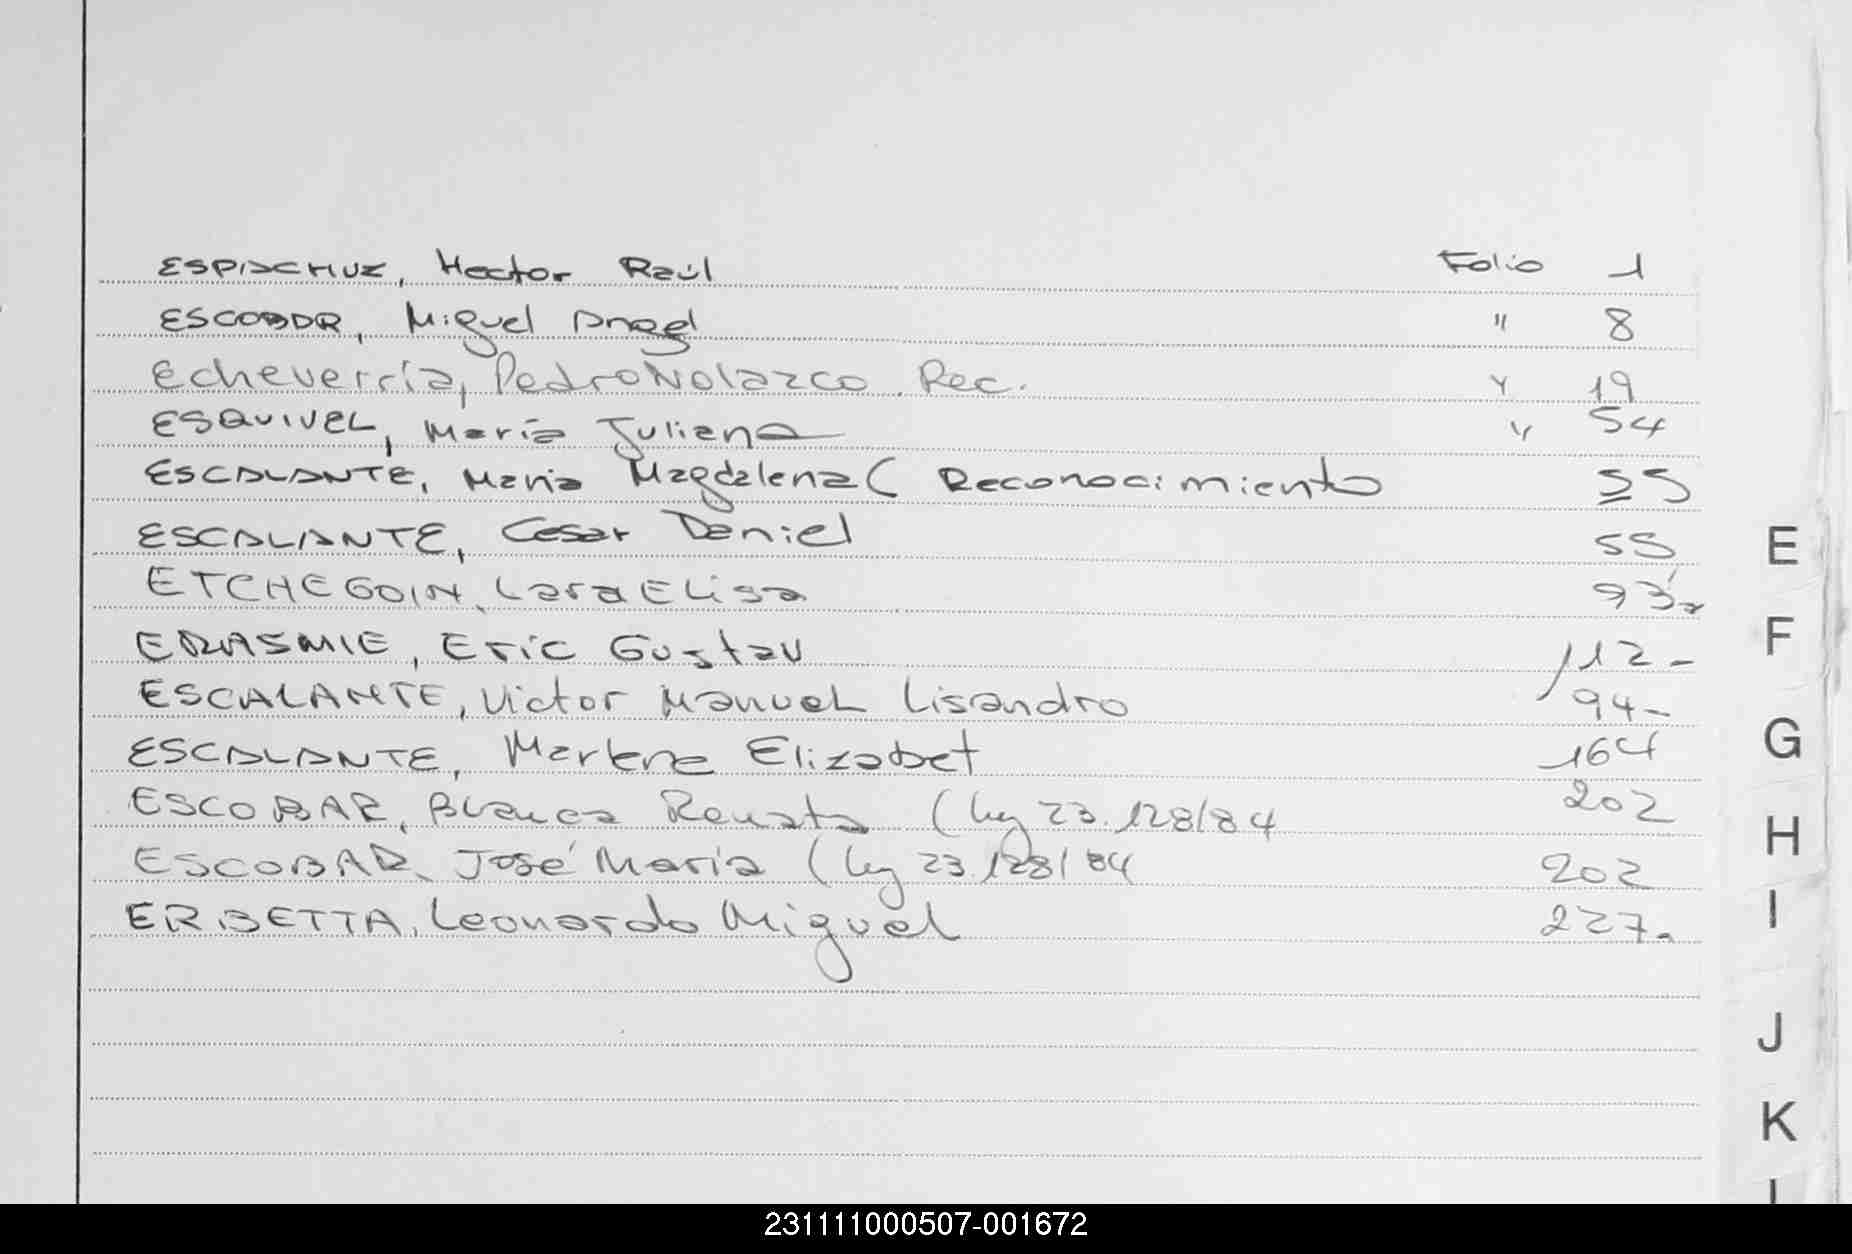 ESPIACHUZ, Hector Raúl Folio 1
ESCOBAR, Miguel Angel " 8
Echeverría, Pedro Nolazco. Rec. " 19
ESQUIVEL, María Juliana " 54
ESCALANTE, Maria Magdalena ( Reconocimiento 55
ESCALANTE, Cesar Daniel 55
ETCHEGOIN, Lara Elisa 93
ERASMIE, Eric Gustav 112-
ESCALANTE, Victor Manuel Lisandro 94-
ESCALANTE, Marlene Elizabet 164
ESCOBAR, Blanca Renata (ley 23.128/84 202
ESCOBAR, José María (ley 23.128/84 202
ERBETTA, Leonardo Miguel 227.
E
F
G
H
I
J
K
231111000507-001672